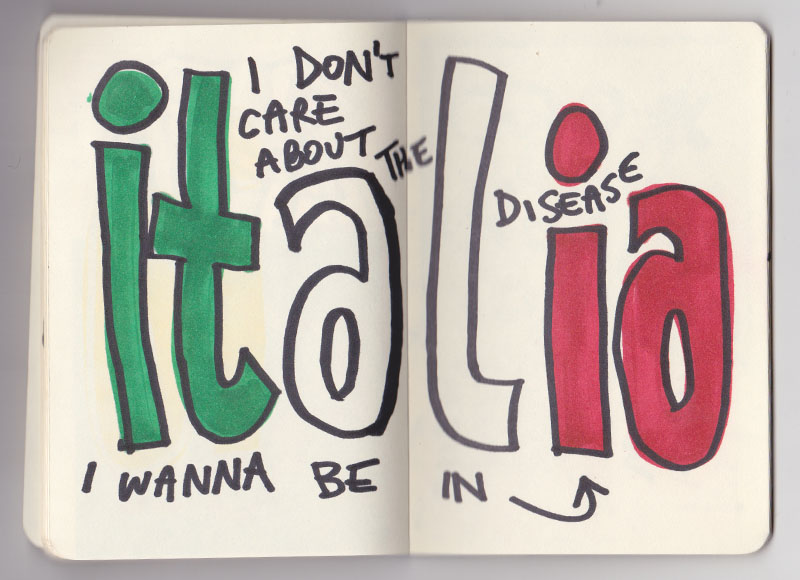 I DON'T
CARE
ABOUT THE
DISEASE
italia
I WANNA BE IN